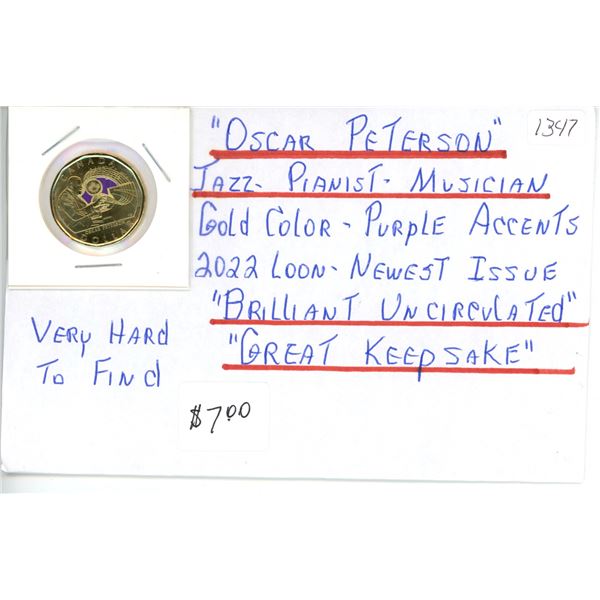 1347
"OSCAR PETERSON"
JAZZ- PIANIST- MUSICIAN
Gold Color - PURPLE ACCENTS
2022 LOON- NEWEST ISSUE
"BRILLIANT UNCIRCULATED"
"GREAT KEEPSAKE"
VERY HARD
TO FINd
$7.00
CANADA
OSCAR PETERSON
DOLLAR